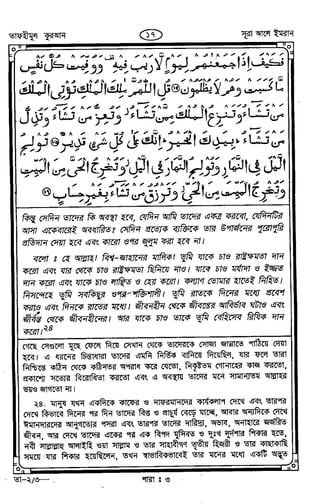 তাফহীমুল কুরআন
১৭
সূরা আলে ইমরান
فَكَيْفَ إِذَا جَمَعْنٰهُمْ لِيَوْمٍ لَّا رَيْبَ فِيْهِ وَوُفِّيَتْ كُلُّ نَفْسٍ
مَّا كَسَبَتْ وَهُمْ لَا يُظْلَمُوْنَ قُلِ اللّٰهُمَّ مٰلِكَ الْمُلْكِ تُؤْتِي الْمُلْكَ
مَنْ تَشَاءُ وَتَنْزِعُ الْمُلْكَ مِمَّنْ تَشَاءُ وَتُعِزُّ مَنْ تَشَاءُ وَتُذِلُّ
مَنْ تَشَاءُ بِيَدِكَ الْخَيْرُ إِنَّكَ عَلٰى كُلِّ شَيْءٍ قَدِيْرٌ تُوْلِجُ
الَّيْلَ فِي النَّهَارِ وَتُوْلِجُ النَّهَارَ فِي الَّيْلِ وَتُخْرِجُ الْحَيَّ مِنَ الْمَيِّتِ
وَتُخْرِجُ الْمَيِّتَ مِنَ الْحَيِّ وَتَرْزُقُ مَنْ تَشَاءُ بِغَيْرِ حِسَابٍ
কিন্তু সেদিন তাদের কি অবস্থা হবে, যেদিন আমি তাদের একত্র করবো, যেদিনটির
আসা একেবারেই অবধারিত? সেদিন প্রত্যেক ব্যক্তিকে তার উপার্জনের পুরোপুরি
প্রতিদান দেয়া হবে এবং কারো ওপর জুলুম করা হবে না।
বলো ঃ হে আল্লাহ! বিশ্ব-জাহানের মালিক! তুমি যাকে চাও রাষ্ট্রক্ষমতা দান
করো এবং যার থেকে চাও রাষ্ট্রক্ষমতা ছিনিয়ে নাও। যাকে চাও মর্যাদা ও ইজ্জত
দান করো এবং যাকে চাও লাঞ্ছিত ও হেয় করো। কল্যাণ তোমার হাতেই নিহিত।
নিঃসন্দেহে তুমি সবকিছুর ওপর-শক্তিশালী। তুমি রাতকে দিনের মধ্যে প্রবেশ
করাও এবং দিনকে রাতের মধ্যে। জীবনহীন থেকে জীবন্তের আবির্ভাব ঘটাও এবং
জীবন্ত থেকে জীবনহীনের। আর যাকে চাও তাকে তুমি বেহিসেব রিযিক দান
করো।২৪
গেছে সেগুলো মুছে ফেলে দিয়ে সেখান থেকে তাদেরকে সোজা জান্নাতে পাঠিয়ে দেয়া
হবে। এ ধরনের চিন্তাধারা তাদের এমনি নির্ভীক বানিয়ে দিয়েছিল, যার ফলে তারা
নিশ্চিন্তে কঠিন থেকে কঠিনতর অপরাধ করে যেতো, নিকৃষ্টতম গোনাহের কাজ করতো,
প্রকাশ্যে সত্যের বিরোধিতা করতো এবং এ অবস্থায় তাদের মনে সামান্যতম আল্লাহর
ভয়ও জাগতো না।
২৪. মানুষ যখন একদিকে কাফের ও নাফরমানদের কার্যকলাপ দেখে এবং তারপর
দেখে কিভাবে দিনের পর দিন তাদের বিত্ত ও প্রাচুর্য বেড়ে যাচ্ছে, আবার অন্যদিকে দেখে
ঈমানদারদের আনুগত্যের পসরা এবং তারপর তাদের দারিদ্র, অভাব, অনাহারে জর্জরিত
জীবন, আর দেখে তাদের একের পর এক বিপদ মুসিবত ও দুঃখ দুর্দশার শিকার হতে,
নবী সাল্লাল্লাহু আলাইহি ওয়া সাল্লাম ও তার সাহাবীগণ তৃতীয় হিজরী ও তার কাছাকাছি
সময়ে যার শিকার হয়েছিলেন, তখন স্বাভাবিকভাবেই তার মনের মধ্যে একটি অদ্ভুত
তা-২/৩—
পারা ঃ ৩